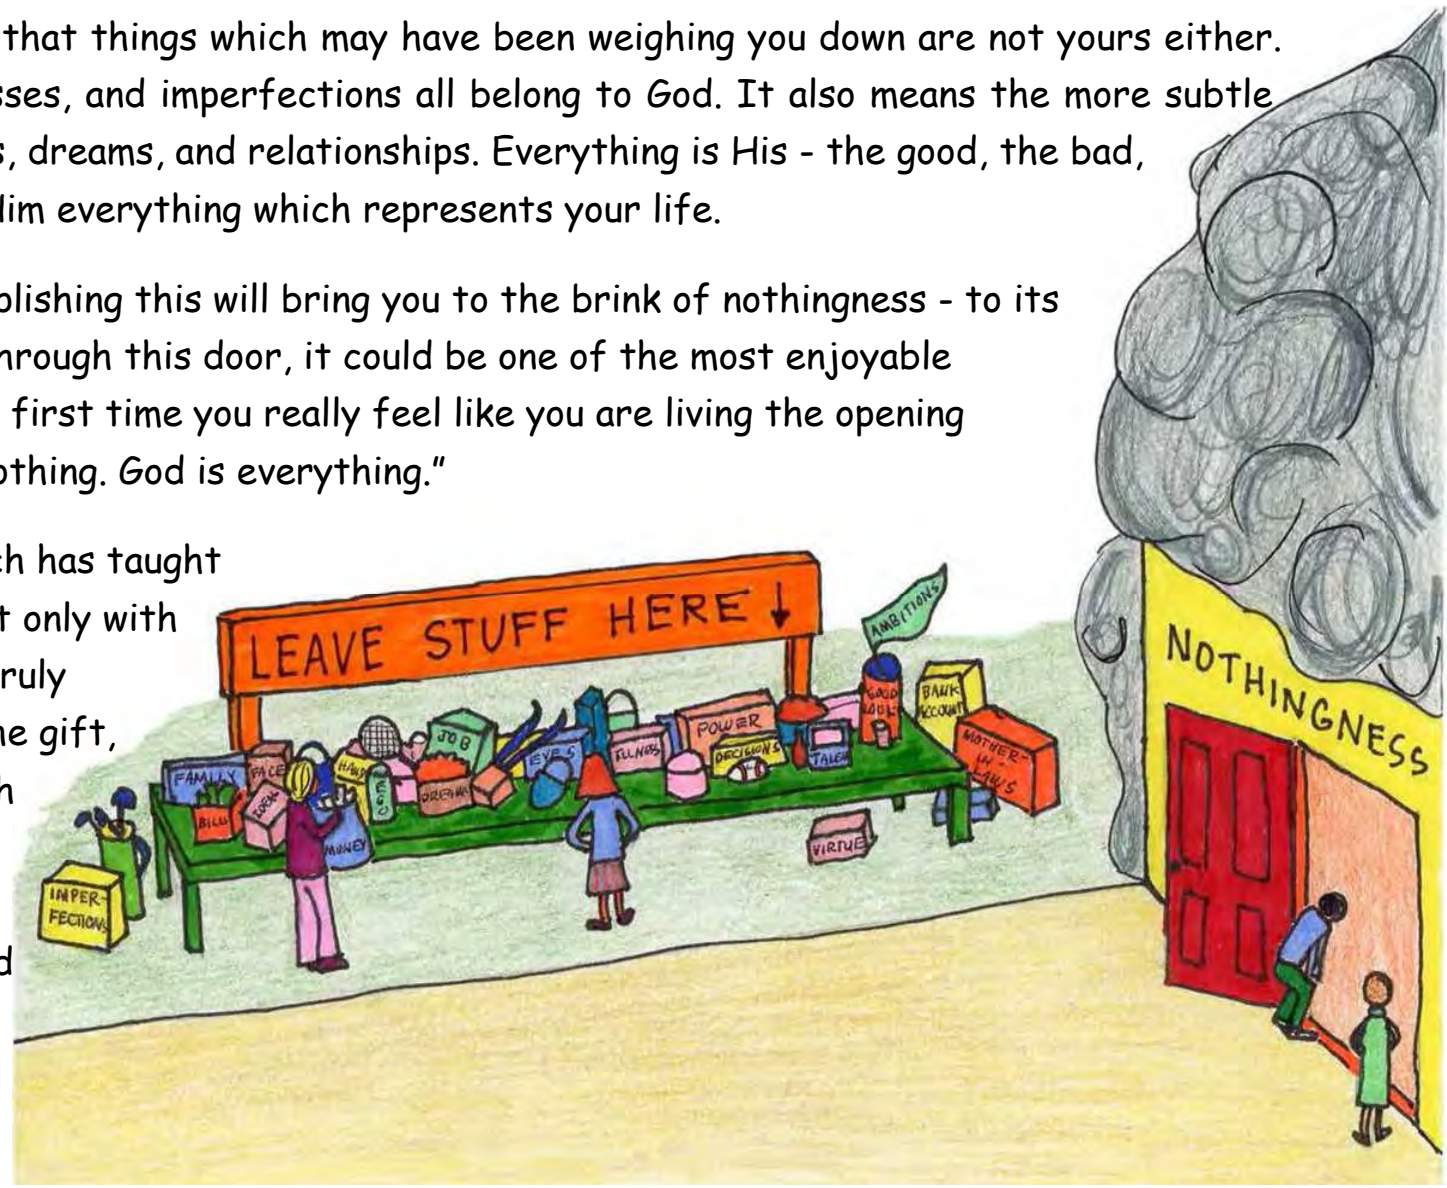 that things which may have been weighing you down are not yours either.
sses, and imperfections all belong to God. It also means the more subtle
s, dreams, and relationships. Everything is His - the good, the bad,
Him everything which represents your life.
plishing this will bring you to the brink of nothingness - to its
hrough this door, it could be one of the most enjoyable
first time you really feel like you are living the opening
othing. God is everything."
ch has taught
t only with
ruly
ne gift,
h
d
LEAVE STUFF HERE ↓
AMBITIONS
NOTHINGNESS
GOOD
LOOKS
BANK
ACCOUNT
POWER
JOB
MOTHER-
IN-
LAWS
FAMILY
FACE
EYES
ILLNESS
DECISIONS
EGO
DREAMS
BILLS
IDEAS
MONEY
VIRTUE
IMPER-
FECTIONS